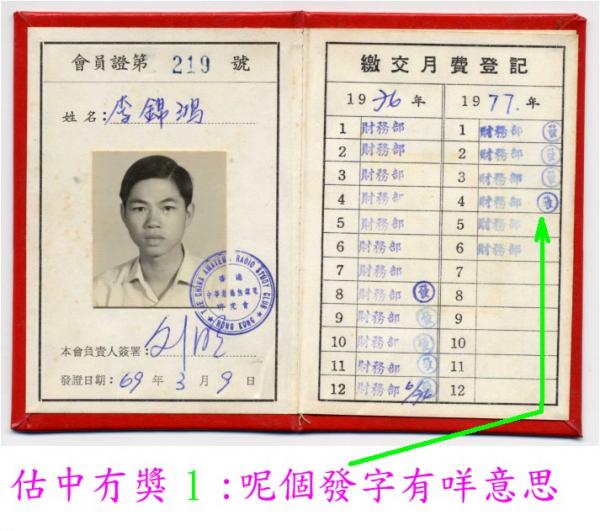 會員證第 219 號
姓名:李錦鴻
THE CHINA AMATEUR RADIO STUDY CLUB
中華業餘無線電
研究會
HONG KONG
本會負責人簽署:
發證日期: 69 年 3 月 9 日
繳交月費登記
1976 年 1977. 年
1 財務部 1 財務部 發
2 財務部 2 財務部 發
3 財務部 3 財務部 發
4 財務部 4 財務部 發
5 財務部 5 財務部
6 財務部 6 財務部
7 財務部 7
8 財務部 發 8
9 財務部 發 9
10 財務部 發 10
11 財務部 發 11
12 財務部 發 12
估中冇獎1:呢個發字有咩意思